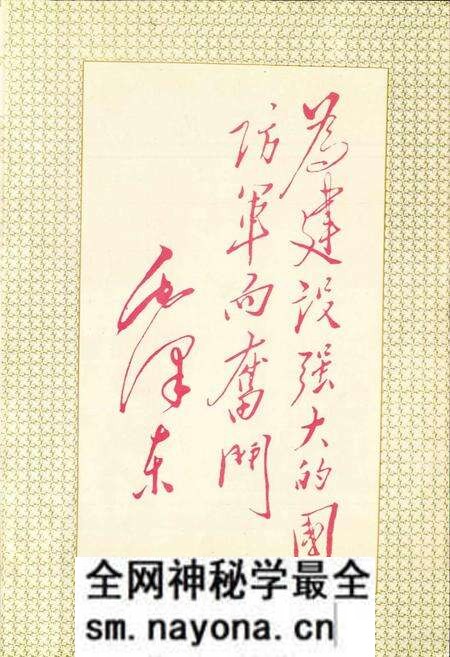 為建设强大的國
防軍而奮鬥
毛泽东
全网神秘学最全
sm.nayona.cn